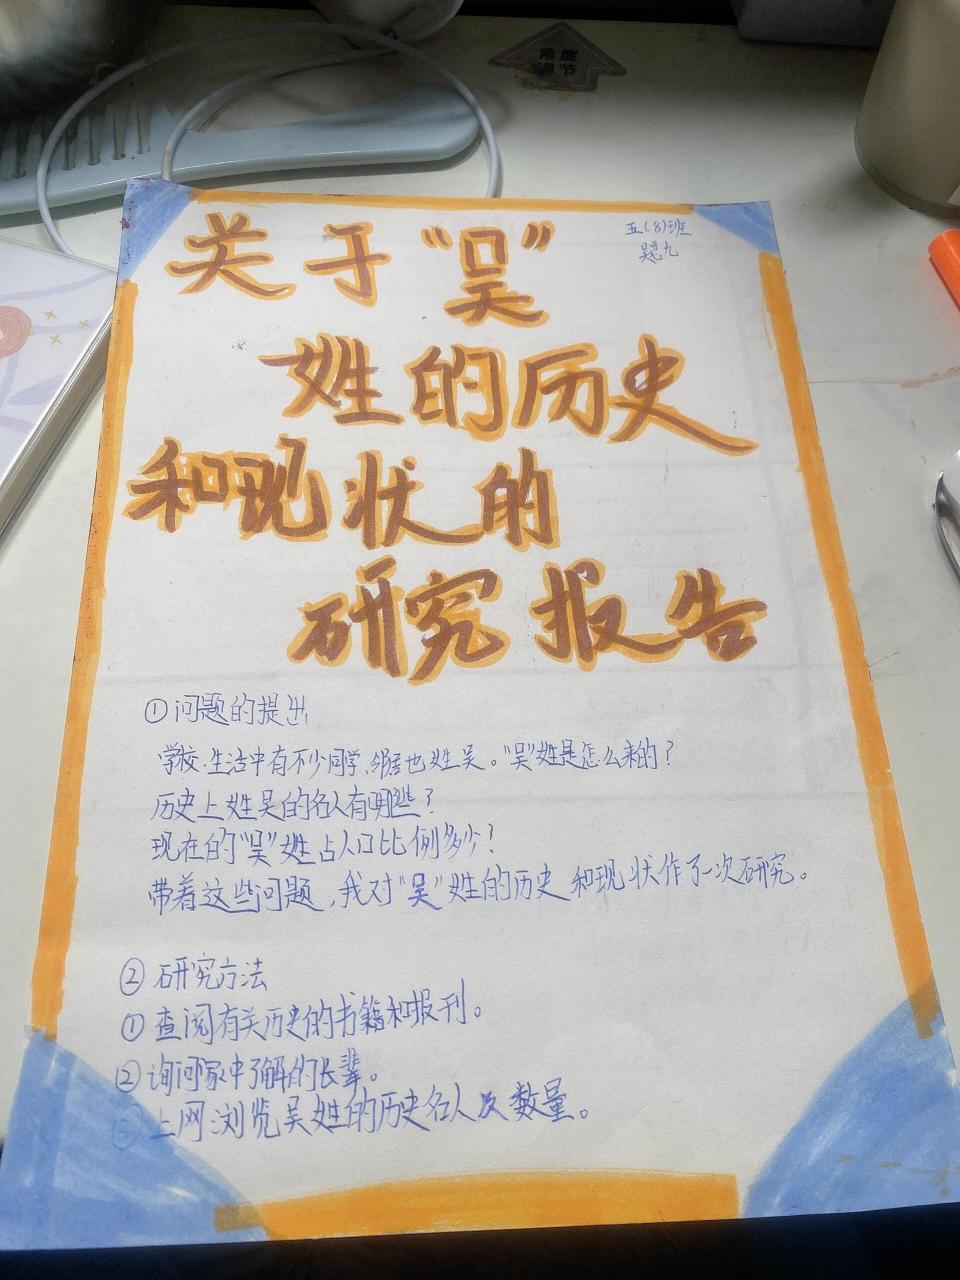 角度
调节
五(8)班
关于“吴”
姓的历史
和现状的
研究报告
①问题的提出
学校、生活中有不少同学、邻居也姓吴。“吴”姓是怎么来的?
历史上姓吴的名人有哪些?
现在的“吴”姓占人口比例多少?
带着这些问题,我对“吴”姓的历史和现状作了一次研究。
②研究方法
①查阅有关历史的书籍和报刊。
②询问家中了解的长辈。
③上网浏览吴姓的历史名人及数量。